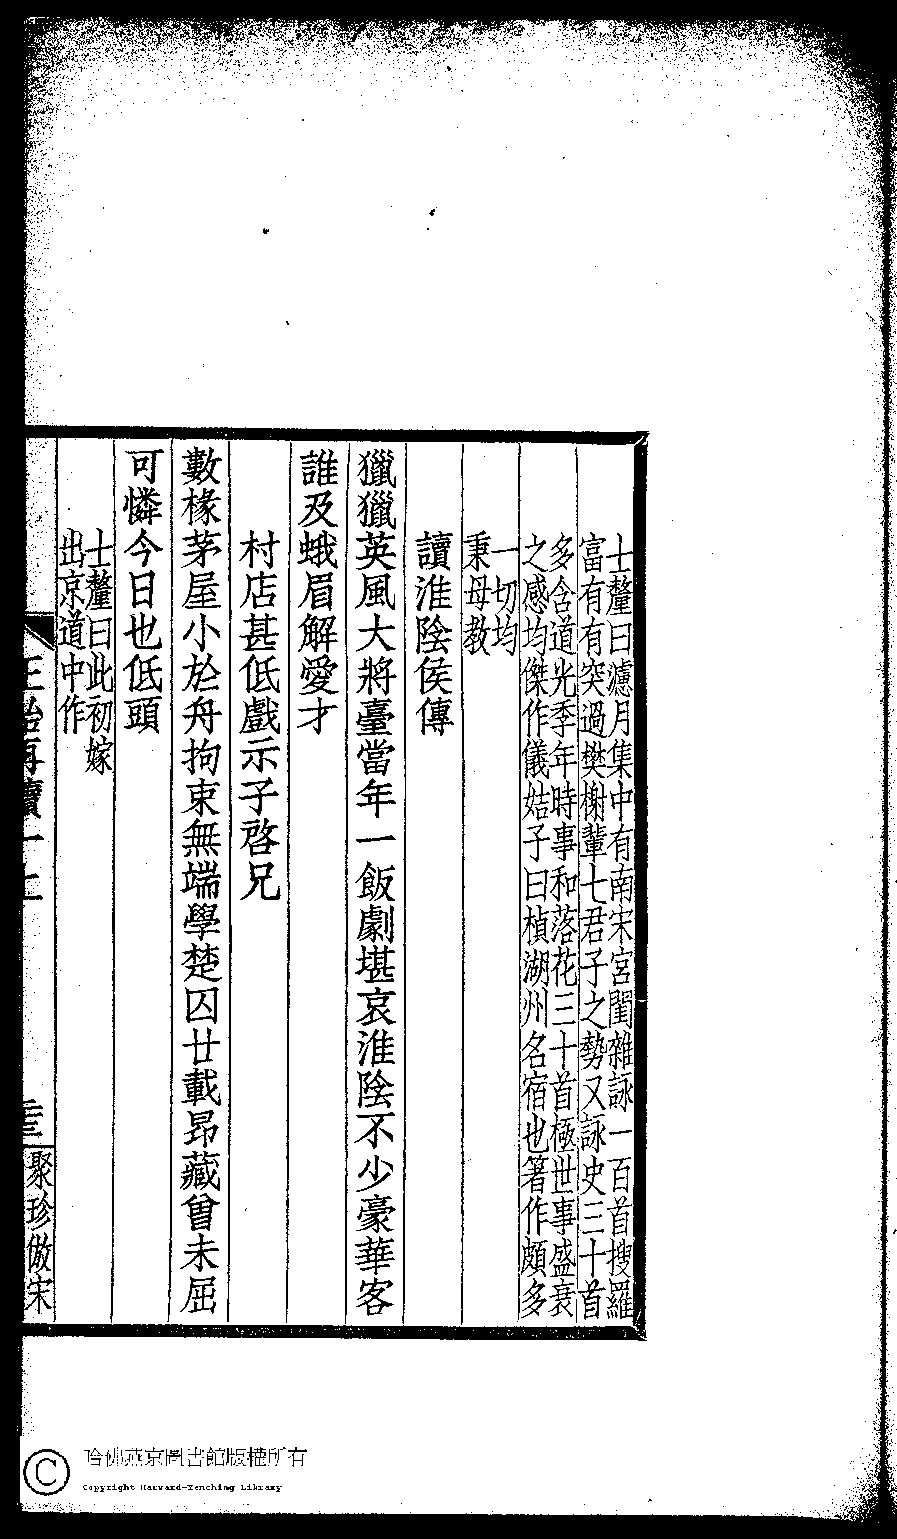 士釐曰濾月集中有南宋宮閨雜詠一百首搜羅
富有有突過樊榭輩七君子之勢又詠史三十首
多含道光季年時事和落花三十首極世事盛衰
之感均傑作儀姞子曰楨湖州名宿也箸作頗多
一切均
秉母教
讀淮陰侯傳
獵獵英風大將臺當年一飯劇堪哀淮陰不少豪華客
誰及蛾眉解愛才
村店甚低戲示子啓兄
數椽茅屋小於舟拘束無端學楚囚廿載昂藏曾未屈
可憐今日也低頭
士釐曰此初嫁
出京道中作
再續一上
聚珍倣宋
哈佛燕京圖書館版權所有
Copyright Harvard-Yenching Library